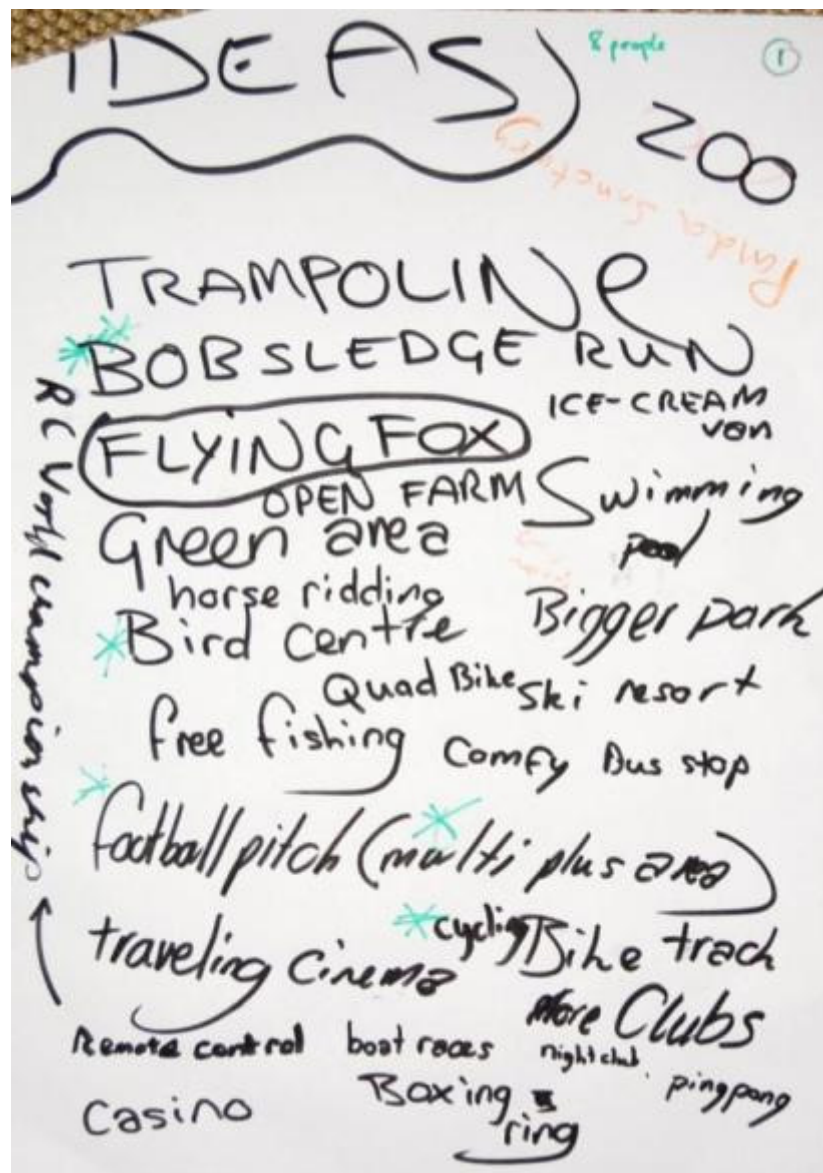 IDEAS
8 people
1
ZOO
Panda Sanctury
TRAMPOLINe
BOBSLEDGE RUN
ICE-CREAM
van
FLYING FOX
OPEN FARM
Swimming
pool
Green area
horse ridding
Bigger park
Bird centre
Quad Bike
Ski resort
free fishing
Comfy Bus stop
football pitch (multi plus area)
traveling cinema
cycling Bike track
More Clubs
night club
Remote control boat races
pingpong
Casino
Boxing
ring
RC World championship